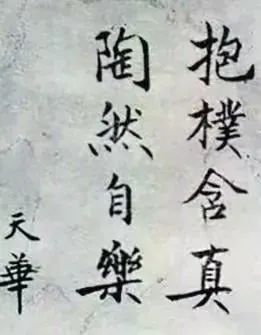 抱樸含真
陶然自樂
天華